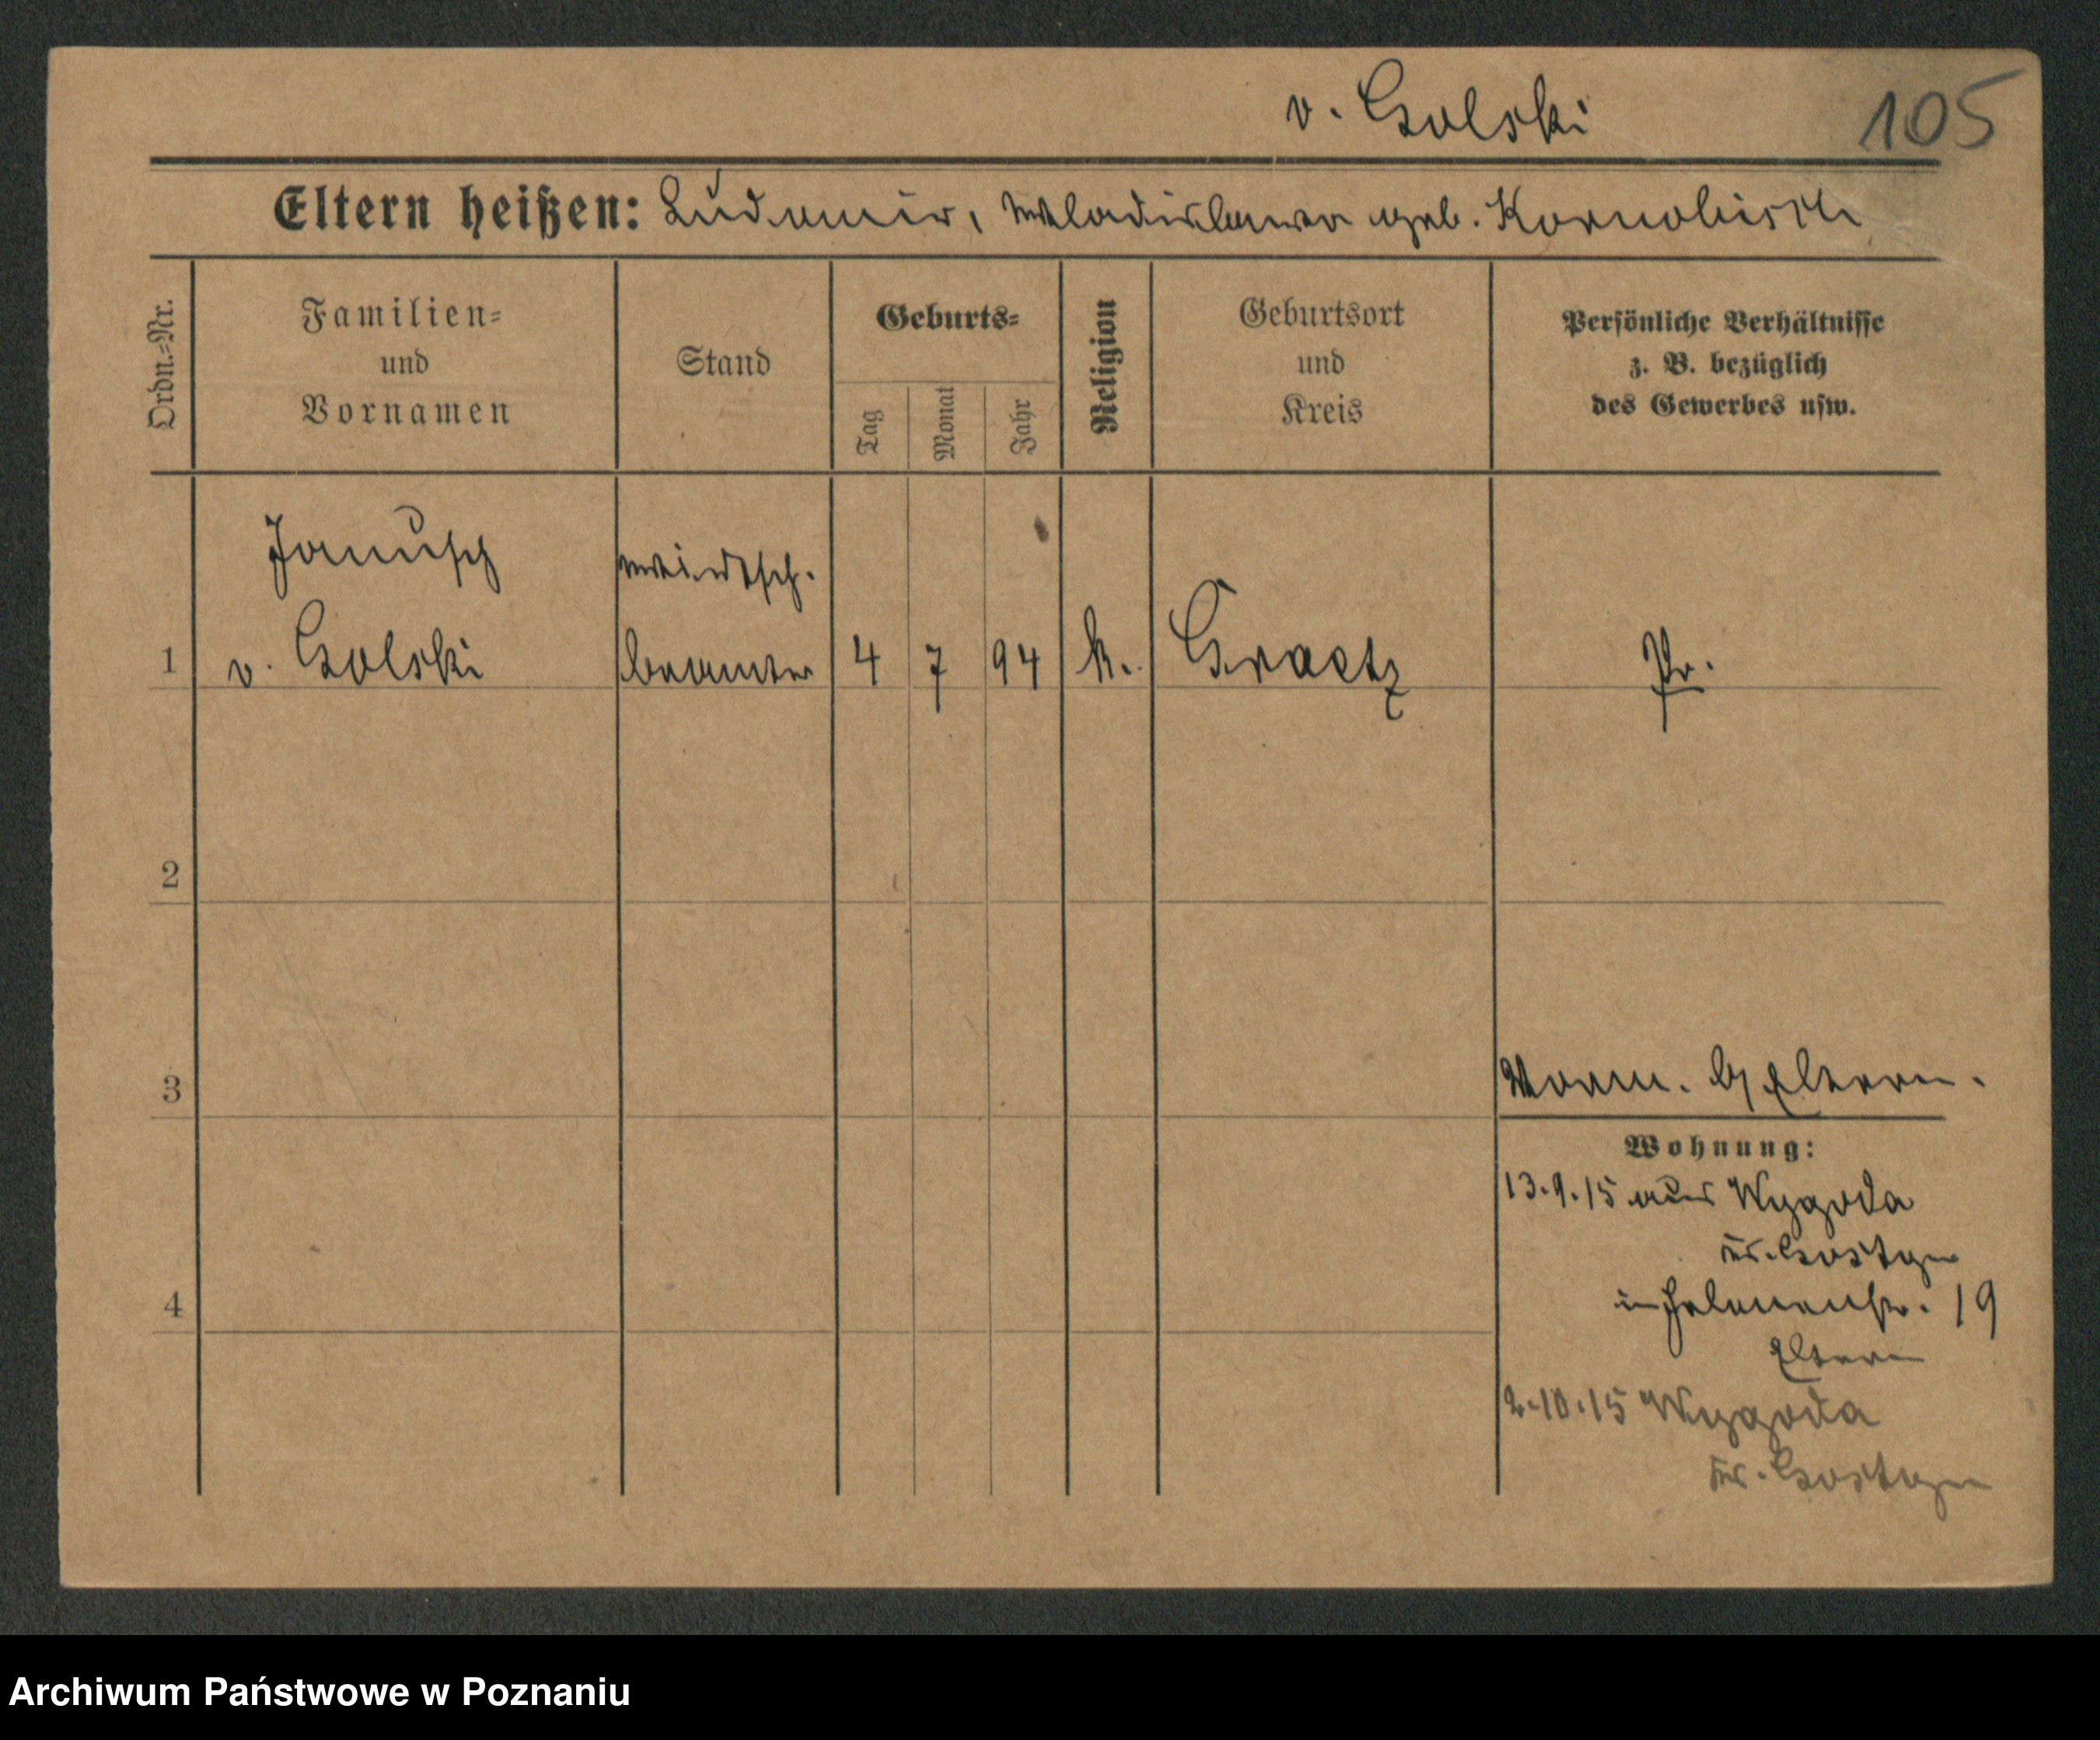 v. Golski
105
Eltern heißen: Ludomir, Wladislawa geb. Kornobis
Ordn.-Nr.
Familien-
und
Vornamen
Stand
Geburts-
Tag
Monat
Jahr
Religion
Geburtsort
und
Kreis
Persönliche Verhältnisse
z. B. bezüglich
des Gewerbes usw.
Janusch
wirtsch.
1 v. Golski beamter 4 7 94 k. Graetz Pr.
2
3
Worm. b/ Eltern.
Wohnung:
13.9.15 aus Wygoda
Kr. Gostyn
4
in Helenenstr. 19
Eltern
2.10.15 Wygoda
Kr. Gostyn
Archiwum Państwowe w Poznaniu